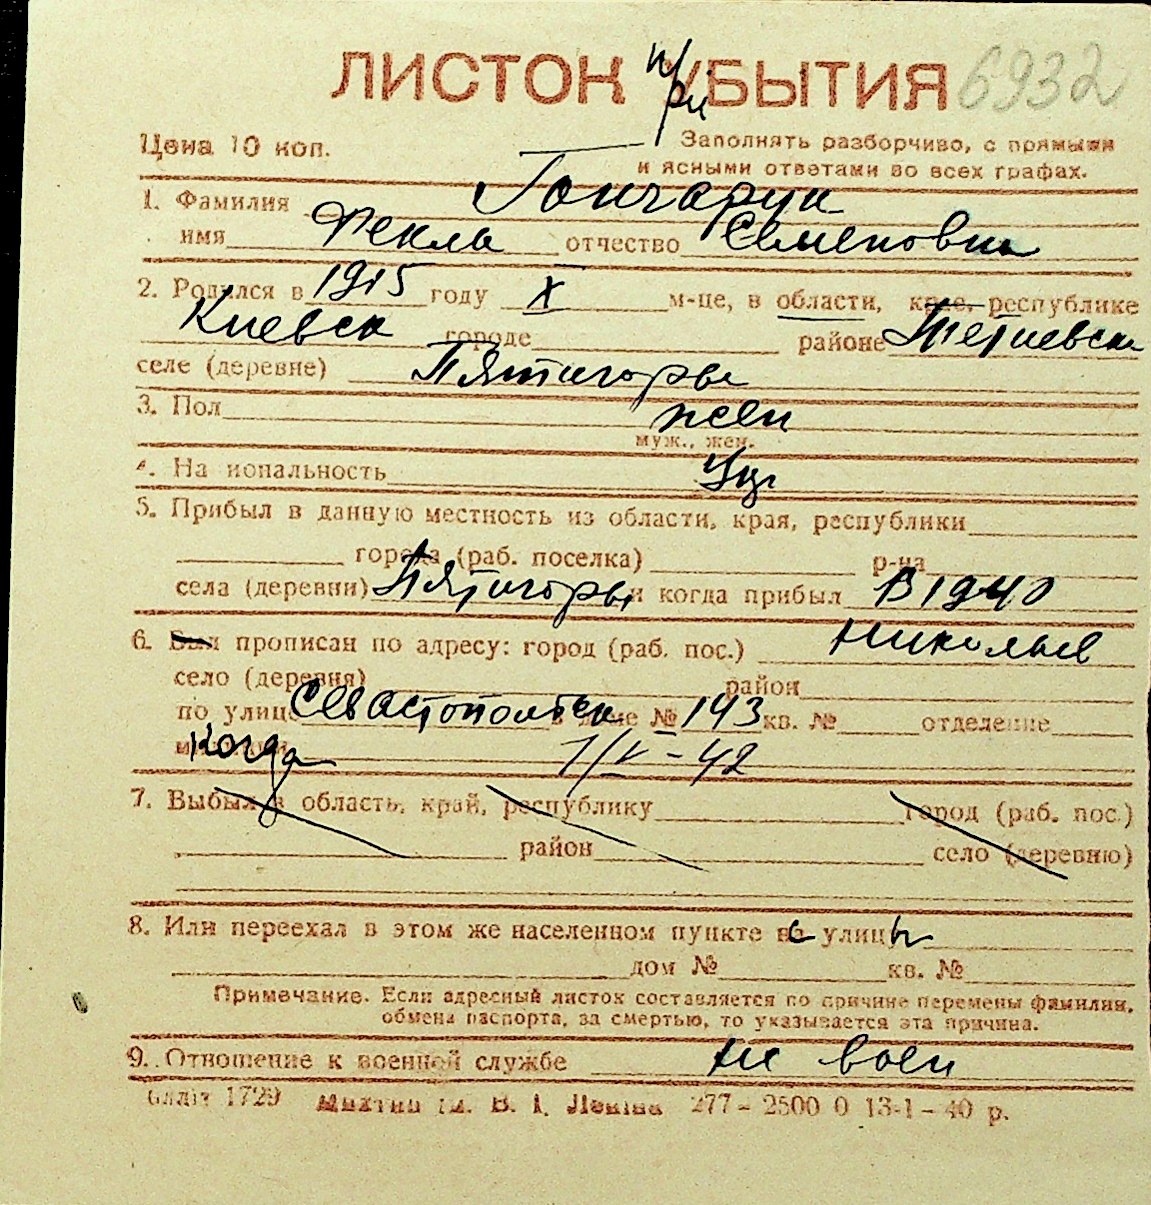 ЛИСТОК при УБЫТИЯ 6932
Цена 10 коп.
Заполнять разборчиво, с прямыми
и ясными ответами во всех графах.
1. Фамилия Гончарук
имя Фекла отчество Семеновна
2. Родился в 1915 году X м-це, в области, крае, республике
Киевск городе районе Тетиевск
селе (деревне) Пятигоры
3. Пол жен
муж., жен.
4. На иональность Укр
5. Прибыл в данную местность из области, края, республики
города (раб. поселка) р-на
села (деревни) Пятигоры и когда прибыл В 1940
6. Был прописан по адресу: город (раб. пос.) Николаев
село (деревня) район
по улице Севастопольск доме № 143 кв. № отделение
милиции Когда 1/V-42
7. Выбыл в область, край, республику город (раб. пос.)
район село (деревню)
8. Или переехал в этом же населенном пункте с улицы
дом № кв. №
Примечание. Если адресный листок составляется по причине перемены фамилии,
обмена паспорта, за смертью, то указывается эта причина.
9. Отношение к военной службе не воен
1729 В. І. Леніна 277-2500 0 13-1-40 р.